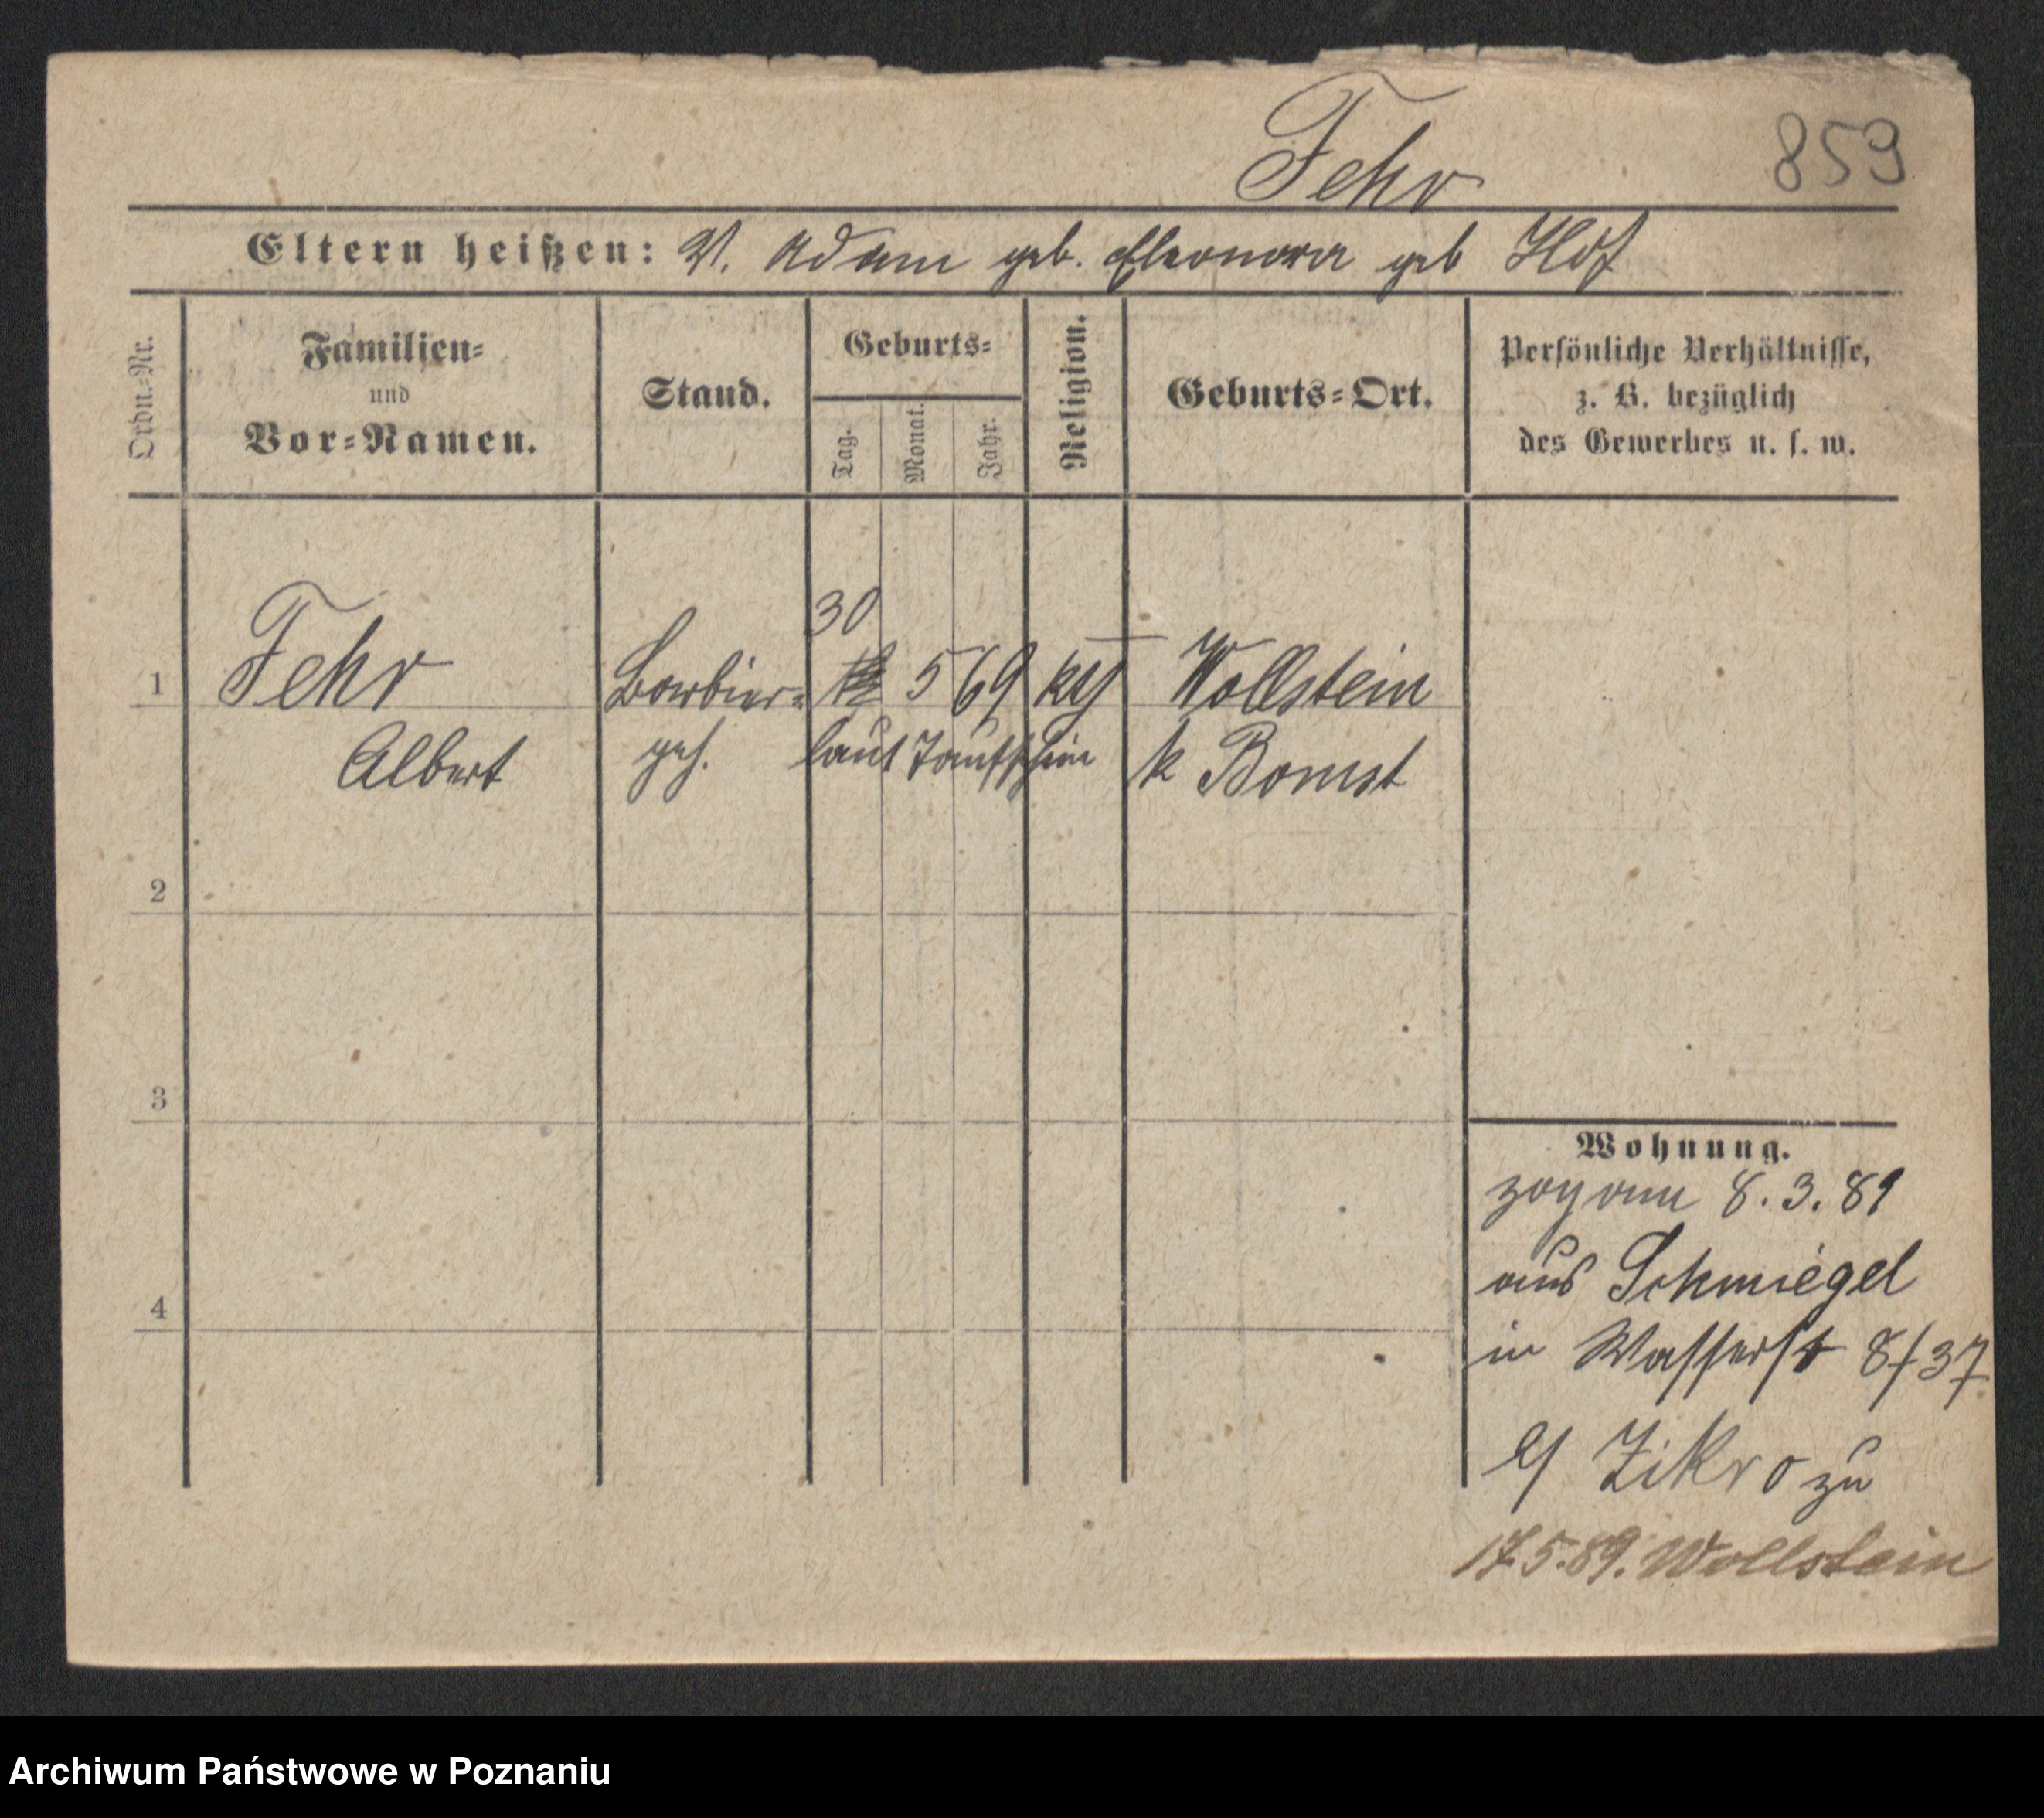 Fehr
859
Eltern heißen: V. Adam geb. Eleonora geb Hof
Ordn.-Nr.
Familien-
und
Vor-Namen.
Stand.
Geburts-
Tag.
Monat.
Jahr.
Religion.
Geburts-Ort.
Persönliche Verhältnisse,
z. B. bezüglich
des Gewerbes u. s. w.
30
1 Fehr Barbier- 5 69 Wollstein
Albert geh. laut Taufschein k Bomst
2
3
4
Wohnung.
zog am 8.3.89
aus Schmiegel
in Wasserst 8/37
Zikro zu
17.5.89. Wollstein
Archiwum Państwowe w Poznaniu